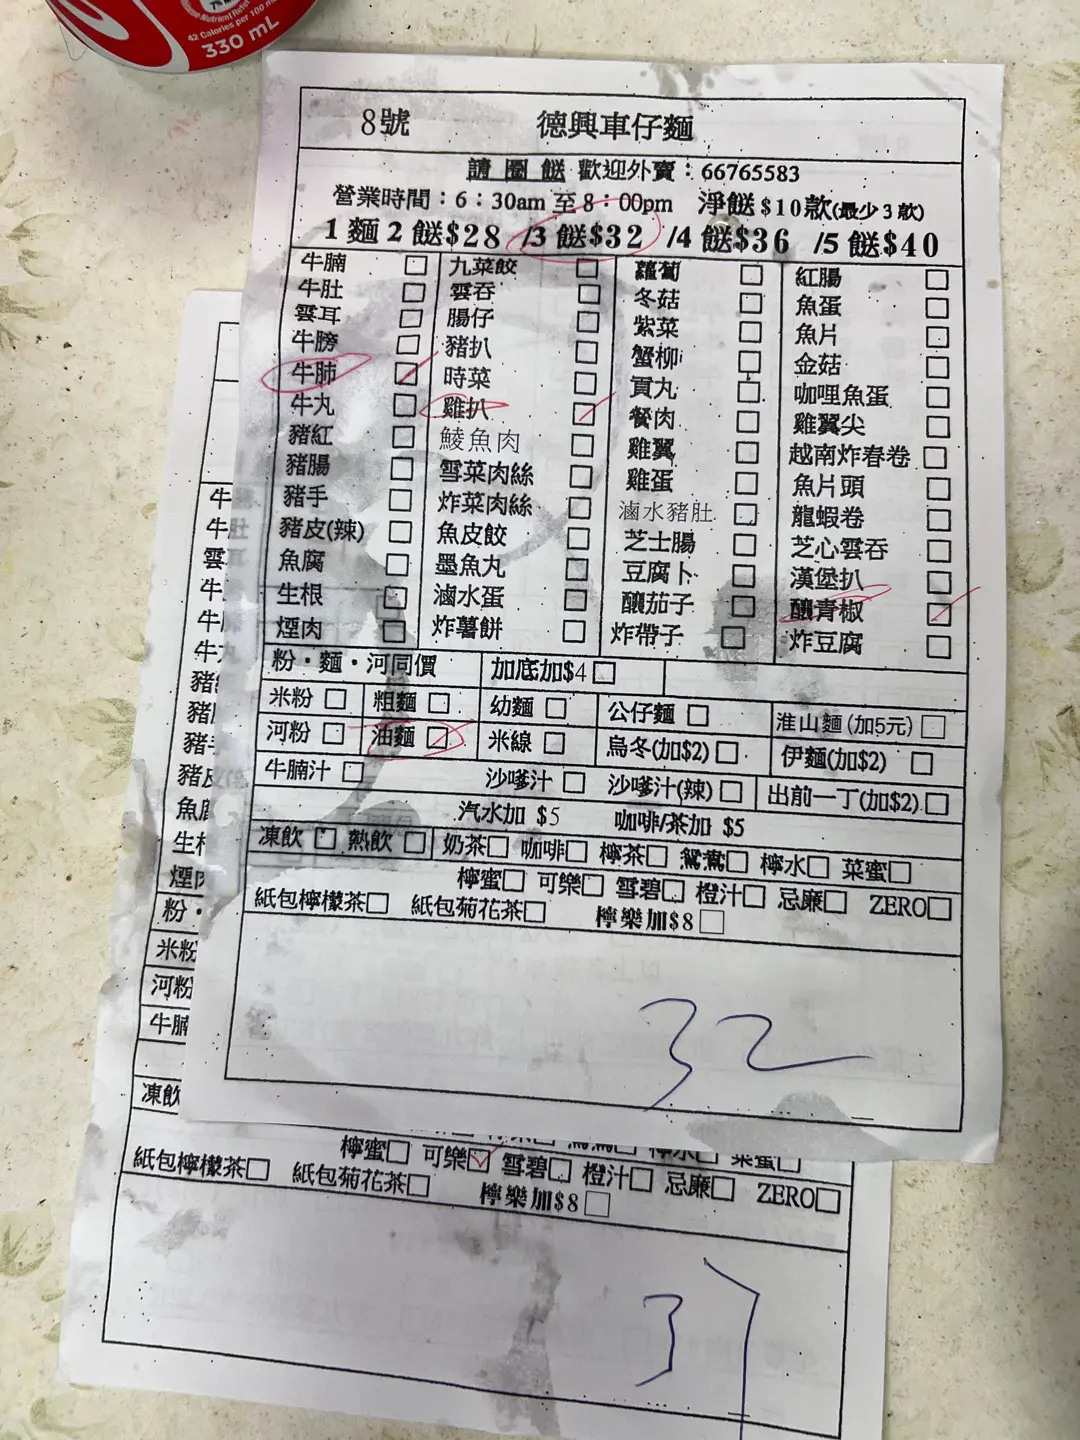 42 Calories per 100 m
330 mL
8號 德興車仔麵
請圈餸 歡迎外賣：66765583
營業時間：6：30am 至 8：00pm 淨餸 $10款(最少3款)
1 麵 2 餸$28 /3 餸$32 /4 餸$36 /5 餸$40
牛腩 □ 九菜餃 □ 蘿蔔 □ 紅腸 □
牛肚 □ 雲吞 □ 冬菇 □ 魚蛋 □
雲耳 □ 腸仔 □ 紫菜 □ 魚片 □
牛膀 □ 豬扒 □ 蟹柳 □ 金菇 □
牛肺 □ 時菜 □ 貢丸 □ 咖哩魚蛋 □
牛丸 □ 雞扒 □ 餐肉 □ 雞翼尖 □
豬紅 □ 鯪魚肉 □ 雞翼 □ 越南炸春卷 □
豬腸 □ 雪菜肉絲 □ 雞蛋 □ 魚片頭 □
豬手 □ 炸菜肉絲 □ 滷水豬肚 □ 龍蝦卷 □
豬皮(辣) □ 魚皮餃 □ 芝士腸 □ 芝心雲吞 □
魚腐 □ 墨魚丸 □ 豆腐卜 □ 漢堡扒 □
生根 □ 滷水蛋 □ 釀茄子 □ 釀青椒 □
煙肉 □ 炸薯餅 □ 炸帶子 □ 炸豆腐 □
粉·麵·河同價 加底加$4 □
米粉 □ 粗麵 □ 幼麵 □ 公仔麵 □ 淮山麵 (加5元) □
河粉 □ 油麵 □ 米線 □ 烏冬(加$2) □ 伊麵(加$2) □
牛腩汁 □ 沙嗲汁 □ 沙嗲汁(辣) □ 出前一丁(加$2) □
汽水加 $5 咖啡/茶加 $5
凍飲 □ 熱飲 □ 奶茶□ 咖啡□ 檸茶□ 鴛鴦□ 檸水□ 菜蜜□
檸蜜□ 可樂□ 雪碧□ 橙汁□ 忌廉□ ZERO□
紙包檸檬茶□ 紙包菊花茶□ 檸樂加$8 □
32
牛
牛肚
雲耳
牛
牛
牛
豬
豬
豬手
豬皮
魚腐
生根
煙肉
粉·
米粉
河粉
牛腩
凍飲
檸蜜□ 可樂□ 雪碧□ 橙汁□ 忌廉□ ZERO□
紙包檸檬茶□ 紙包菊花茶□ 檸樂加$8 □
37